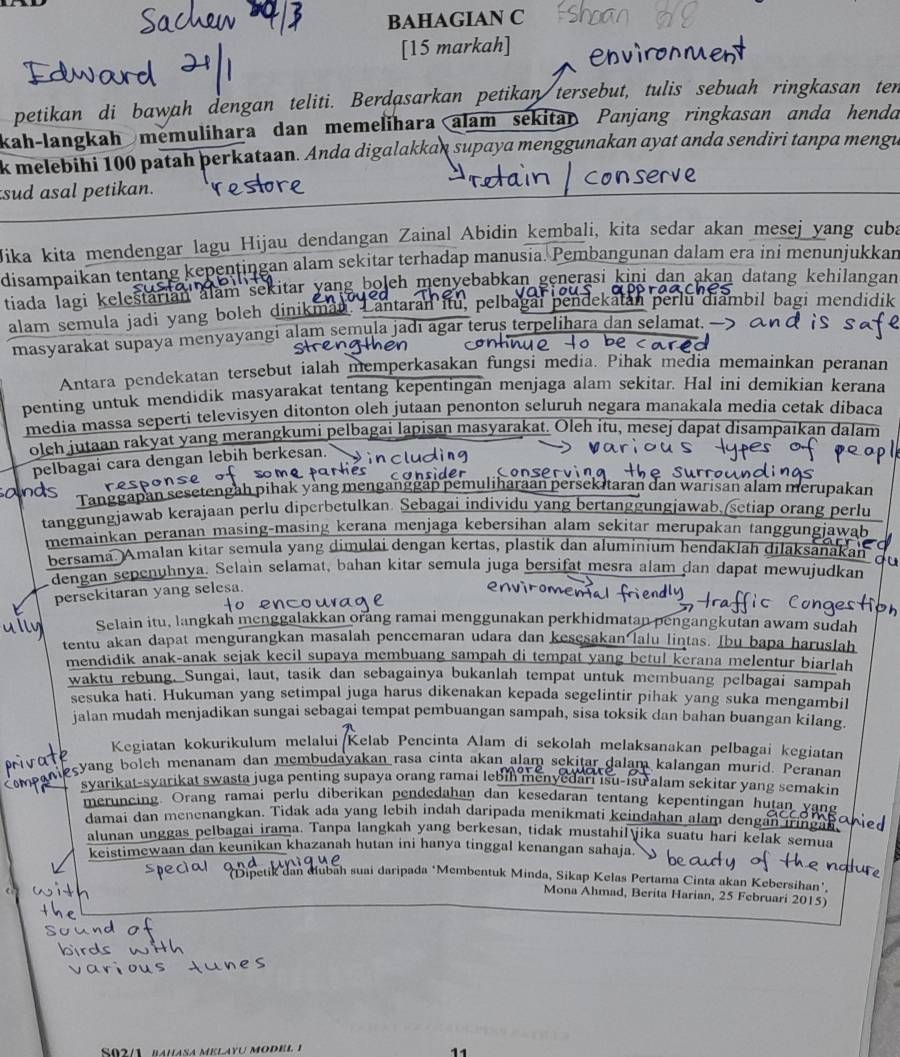 Sachew 4/3 BAHAGIAN C Eshoan
[15 markah]
Edward 21/1 environment
petikan di bawah dengan teliti. Berdasarkan petikan tersebut, tulis sebuah ringkasan ten
kah-langkah memulihara dan memelihara alam sekitar. Panjang ringkasan anda henda
k melebihi 100 patah perkataan. Anda digalakkan supaya menggunakan ayat anda sendiri tanpa mengu
sud asal petikan. restore retain / conserve
Jika kita mendengar lagu Hijau dendangan Zainal Abidin kembali, kita sedar akan mesej yang cuba
disampaikan tentang kepentingan alam sekitar terhadap manusia. Pembangunan dalam era ini menunjukkan
sustainability
tiada lagi kelestarian alam sekitar yang boleh menyebabkan generasi kini dan akan datang kehilangan
enjoyed Then various approaches
alam semula jadi yang boleh dinikmati. Lantaran itu, pelbagai pendekatan perlu diambil bagi mendidik
masyarakat supaya menyayangi alam semula jadi agar terus terpelihara dan selamat. and is safe
strengthen continue to be cared
Antara pendekatan tersebut ialah memperkasakan fungsi media. Pihak media memainkan peranan
penting untuk mendidik masyarakat tentang kepentingan menjaga alam sekitar. Hal ini demikian kerana
media massa seperti televisyen ditonton oleh jutaan penonton seluruh negara manakala media cetak dibaca
oleh jutaan rakyat yang merangkumi pelbagai lapisan masyarakat. Oleh itu, mesej dapat disampaikan dalam
pelbagai cara dengan lebih berkesan. including various types of people
sands response of some parties consider conserving the surroundings
Tanggapan sesetengah pihak yang menganggap pemuliharaan persekitaran dan warisan alam merupakan
tanggungjawab kerajaan perlu diperbetulkan. Sebagai individu yang bertanggungjawab, setiap orang perlu
memainkan peranan masing-masing kerana menjaga kebersihan alam sekitar merupakan tanggungjawab
carried
bersama. Amalan kitar semula yang dimulai dengan kertas, plastik dan aluminium hendaklah dilaksanakan ou
dengan sepenuhnya. Selain selamat, bahan kitar semula juga bersifat mesra alam dan dapat mewujudkan
persekitaran yang selesa. enviromental friendly
ully to encourage traffic congestion
Selain itu, langkah menggalakkan orang ramai menggunakan perkhidmatan pengangkutan awam sudah
tentu akan dapat mengurangkan masalah pencemaran udara dan kesesakan lalu lintas. Ibu bapa haruslah
mendidik anak-anak sejak kecil supaya membuang sampah di tempat yang betul kerana melentur biarlah
waktu rebung. Sungai, laut, tasik dan sebagainya bukanlah tempat untuk membuang pelbagai sampah
sesuka hati. Hukuman yang setimpal juga harus dikenakan kepada segelintir pihak yang suka mengambil
jalan mudah menjadikan sungai sebagai tempat pembuangan sampah, sisa toksik dan bahan buangan kilang.
Kegiatan kokurikulum melalui Kelab Pencinta Alam di sekolah melaksanakan pelbagai kegiatan
private
companies yang boleh menanam dan membudayakan rasa cinta akan alam sekitar dalam kalangan murid. Peranan
more aware of
syarikat-syarikat swasta juga penting supaya orang ramai lebih menyedari isu-isu alam sekitar yang semakin
meruncing. Orang ramai perlu diberikan pendedahan dan kesedaran tentang kepentingan hutan yang
accompanied
damai dan menenangkan. Tidak ada yang lebih indah daripada menikmati keindahan alam dengan iringan
alunan unggas pelbagai irama. Tanpa langkah yang berkesan, tidak mustahil jika suatu hari kelak semua
keistimewaan dan keunikan khazanah hutan ini hanya tinggal kenangan sahaja. beauty of the nature
special and unique
(Dipetik dan diubah suai daripada 'Membentuk Minda, Sikap Kelas Pertama Cinta akan Kebersihan',
Mona Ahmad, Berita Harian, 25 Februari 2015)
with
the
sound of
birds with
various tunes
S02/1 BAHASA MELAYU MODEL 1 11